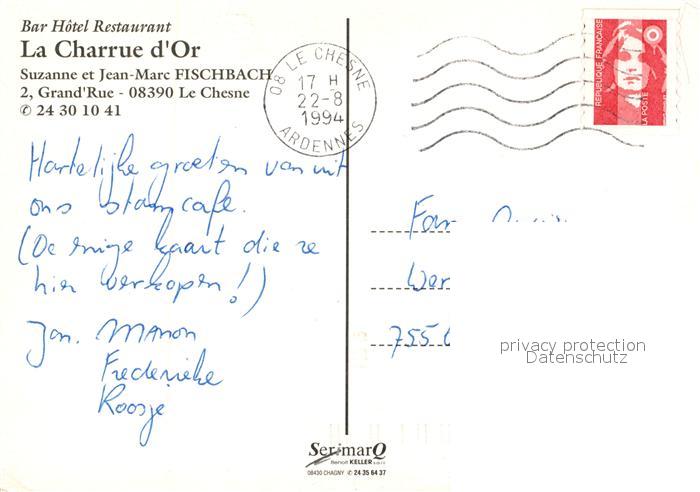 Bar Hôtel Restaurant
La Charrue d'Or
Suzanne et Jean-Marc FISCHBACH
2, Grand'Rue - 08390 Le Chesne
✆ 24 30 10 41
08 LE CHESNE
17 H
22-8
1994
ARDENNES
REPUBLIQUE FRANÇAISE
LA POSTE
Hartelijke groeten van uit
ons stamcafe.
(De enige kaart die ze
hier verkopen!)
Jan. Manon
Frederieke
Roosje
Fam
Wer
7556
privacy protection
Datenschutz
SerimarQ
Benoit KELLER
08430 CHAGNY ✆ 24 35 64 37